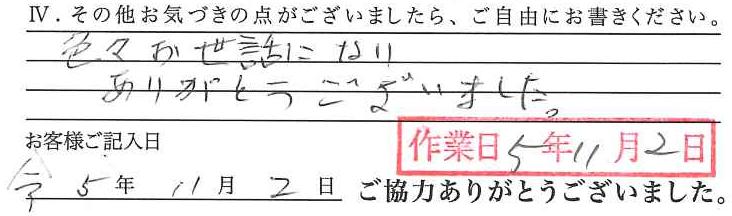 Ⅳ．その他お気づきの点がございましたら、ご自由にお書きください。
色々お世話になり
ありがとうございました。
お客様ご記入日
作業日5年11月2日
令5年11月2日
ご協力ありがとうございました。